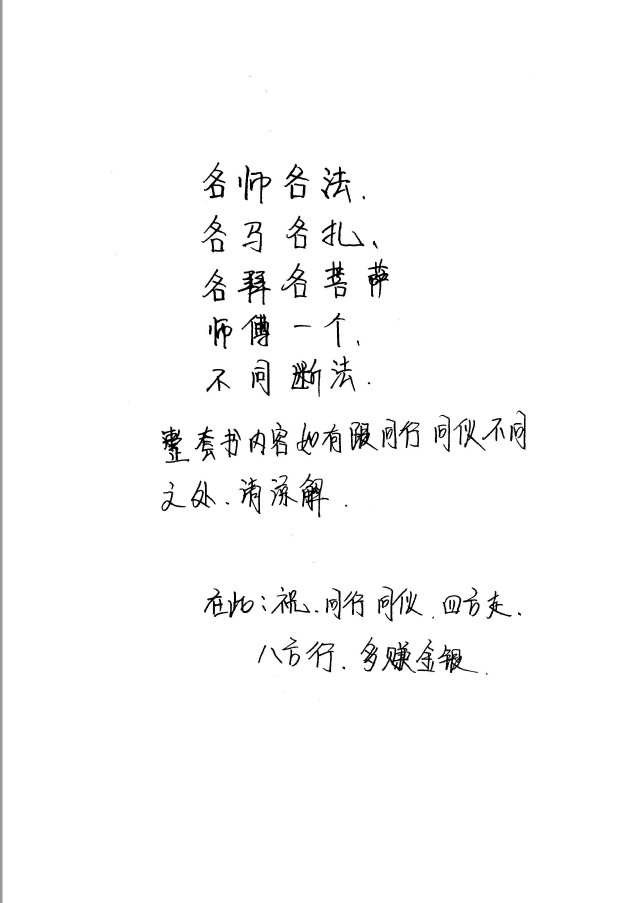 各师各法.
各马各扎、
各拜各菩萨
师傅一个.
不同断法.
整套书内容如有跟同行同仪不同
之处.请谅解.
在此:祝.同行同仪.四方走.
八方行.多赚金银.